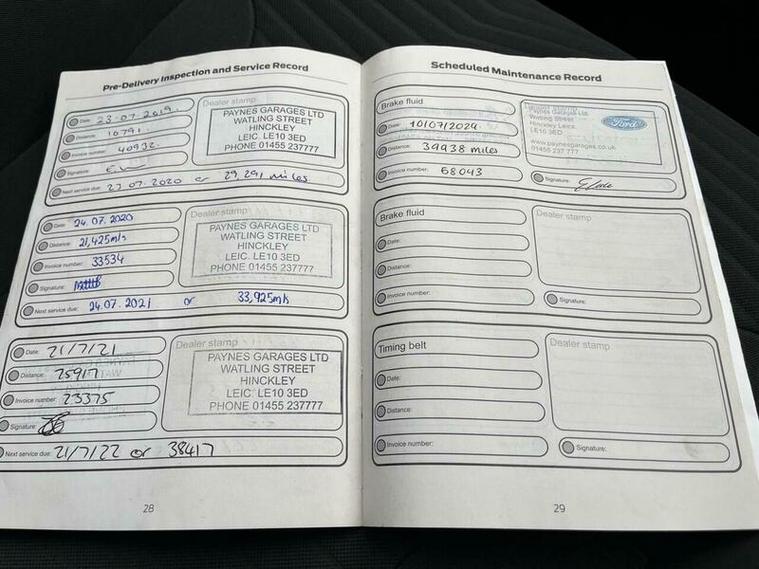 Pre-Delivery Inspection and Service Record
Date: 23.07.2019.
Distance: 10791
Invoice number: 40932
Signature:
Next service due: 23.07.2020 or 29,291 miles
Dealer stamp
PAYNES GARAGES LTD
WATLING STREET
HINCKLEY
LEIC. LE10 3ED
PHONE 01455 237777
Date: 24.07.2020
Distance: 21,425mls
Invoice number: 33534
Signature:
Next service due: 24.07.2021 or 33,925mls
Dealer stamp
PAYNES GARAGES LTD
WATLING STREET
HINCKLEY
LEIC. LE10 3ED
PHONE 01455 237777
Date: 21/7/21
Distance: 25917
Invoice number: 23375
Signature:
Next service due: 21/7/22 or 38417
Dealer stamp
PAYNES GARAGES LTD
WATLING STREET
HINCKLEY
LEIC. LE10 3ED
PHONE 01455 237777
28
Scheduled Maintenance Record
Brake fluid
Date: 10/07/2024.
Distance: 39938 miles
Invoice number: 68043
Dealer stamp
Paynes Garages Ltd
Watling Street
Hinckley Leics
LE10 3ED
www.paynesgarages.co.uk
01455 237 777
Ford
Signature:
Brake fluid
Date:
Distance:
Invoice number:
Dealer stamp
Signature:
Timing belt
Date:
Distance:
Invoice number:
Dealer stamp
Signature:
29